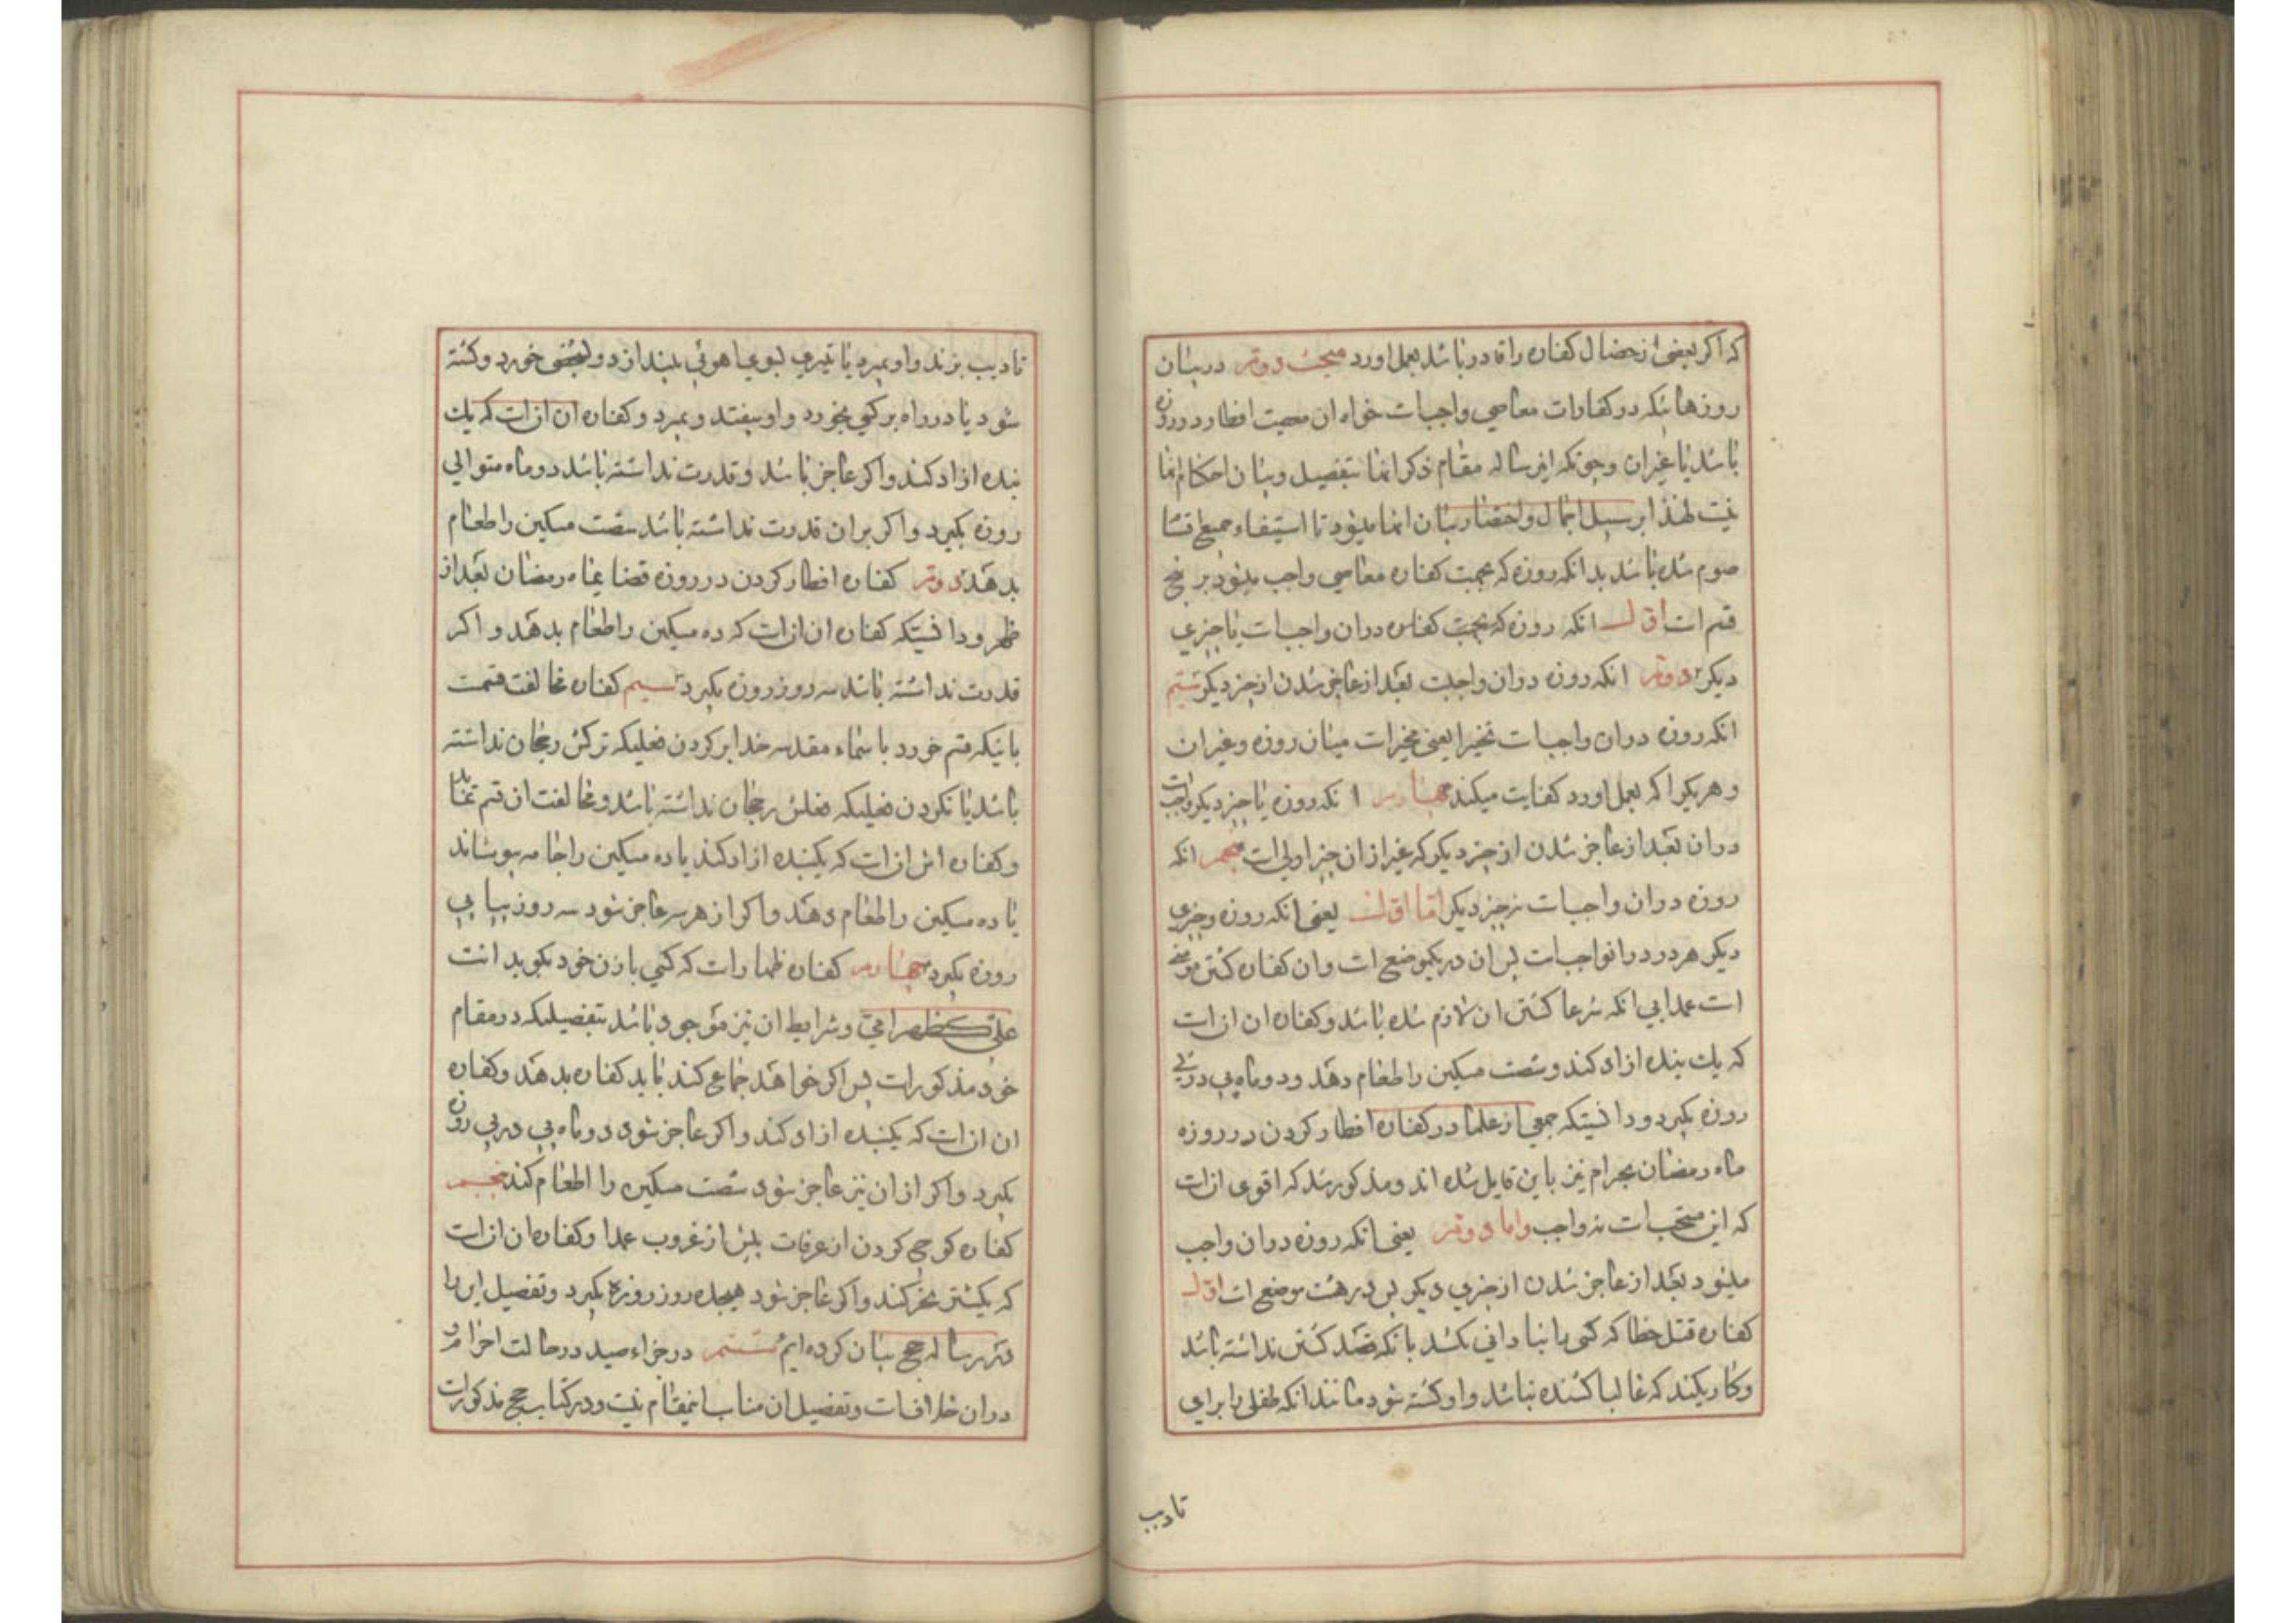 که اکر بعضی از خصال کفاره را قادر باشد بعمل اورد مبحث دوم در بیان
روزهائیکه در کفارات معاصی واجبات خواه ان معصیت افطار در روزه
باشد یا غیر ان وچونکه این رساله مقام ذکر انها بتفصیل وبیان احکام انها
نیست لهذا بر سبیل اجمال واختصار بیان انها میشود تا استیفاء جمیع اقسام
صوم شده باشد بدانکه روزه که بجهت کفاره معاصی واجب میشود بر پنج
قسم است اول انکه روزه که بجهت کفاره دران واجبات با چیزی
دیکر دوم انکه روزه دران واجبت بعد از عاجز شدن از چیز دیکر سیم
انکه روزه دران واجبات تخییرا یعنی مخیرات میان روزه وغیر ان
وهر یکرا که بعمل اورد کفایت میکند چهارم انکه روزه با چیز دیکر واجبات
دران بعد از عاجز شدن از چیز دیکر که غیر از ان چیز اولی است پنجم انکه
روزه دران واجبات نه چیز دیکر اما اول یعنی انکه روزه وچیزی
دیکر هر دو درانواجبات پس ان در یکموضع است وان کفاره کشتن مؤمن
است عمدا بی انکه شرعا کشتن ان لازم شده باشد وکفاره ان انست
که یك بنده ازاد کند وشصت مسکین را طعام دهد ودو ماه پی در پی
روزه بکیرد ودانستیکه جمعی از علما در کفاره افطار کردن در روزه
ماه رمضان بحرام نیز باین قایل شده اند ومذکور شد که اقوی انست
که این مستحب است نه واجب واما دوم یعنی انکه روزه دران واجب
میشود بعد از عاجز شدن از چیزی دیکر پس در هشت موضع است اول
کفاره قتل خطا که کسی را بنادانی بکشد بانکه قصد کشتن نداشته باشد
وکاریکند که غالبا کشنده نباشد واو کشته شود مانند انکه طفلی را برای
تادیب
تادیب بزند واو بمیرد یا تیری بسوی اهوئی بیندازد وبشخصی خورد وکشته
شود یا در راه بر کسی بخورد واو بیفتد وبمیرد وکفاره ان انست که یك
بنده ازاد کند واکر عاجز باشد وقدرت نداشته باشد دو ماه متوالی
روزه بکیرد واکر بران قدرت نداشته باشد شصت مسکین را طعام
بدهد دوم کفاره افطار کردن در روزه قضا بماه رمضان بعد از
ظهر ودانستیکه کفاره ان انست که ده مسکین را طعام بدهد واکر
قدرت نداشته باشد سه روز روزه بکیرد سیم کفاره مخالفت قسمت
باینکه قسم خورد باسماء مقدسه خدا بر کردن فعلیکه ترکش رجحان نداشته
باشد یا نکردن فعلیکه فعلش رجحان نداشته باشد ومخالفت ان قسم نماید
وکفاره اش انست که یکبنده ازاد کند یا ده مسکین را جامه بپوشاند
یا ده مسکین را طعام دهد واکر از هر سه عاجز شود سه روز پیاپی
روزه بکیرد چهارم کفاره ظهار است که کسی با زن خود بکوید انت
علی کظهر امی وشرایط ان نیز موجود باشد بتفصیلیکه در مقام
خود مذکور است پس اکر خواهد جماع کند باید کفاره بدهد وکفاره
ان انست که یکبنده ازاد کند واکر عاجز شود دو ماه پی در پی روزه
بکیرد واکر از ان نیز عاجز شود شصت مسکین را اطعام کند پنجم
کفاره کوچ کردن از عرفات پیش از غروب عمدا وکفاره ان انست
که یکشتر نحر کند واکر عاجز شود هیجده روز روزه بکیرد وتفصیل این را
در رساله حج بیان کرده ایم ششم در جزاء صید در حالت احرام و
دران خلافست وتفصیل ان مناسب اینمقام نیست ودر کتاب حج مذکور است